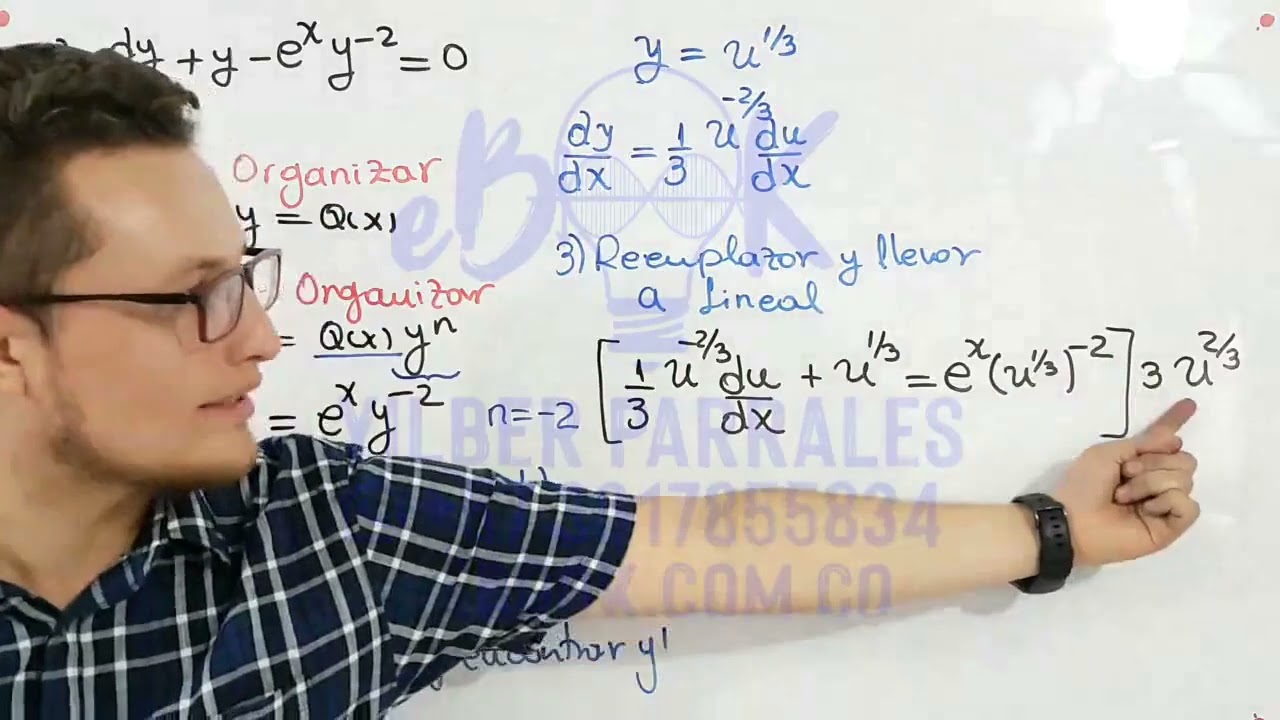 dy + y - e^x y^-2 = 0
Organizar
y = Q(x)
Organizar
= Q(x) y^n
= e^x y^-2 n = -2
y = u^1/3
dy/dx = 1/3 u^-2/3 du/dx
3) Reemplazar y llevar
a lineal
[1/3 u^-2/3 du/dx + u^1/3 = e^x (u^1/3)^-2] 3 u^2/3
encontrar y'
eBOOK
WILBER PARRALES
17855834
.COM.CO